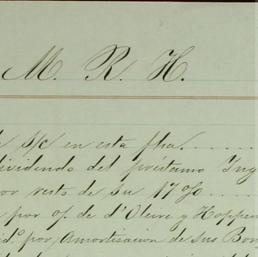 M. R. H.
S/C en esta fha.......
dividendo del préstamo Ing
por resto de su 17%....
por of. de d'Oleire y Hoppen
id.º por Amortisacion de sus Bon